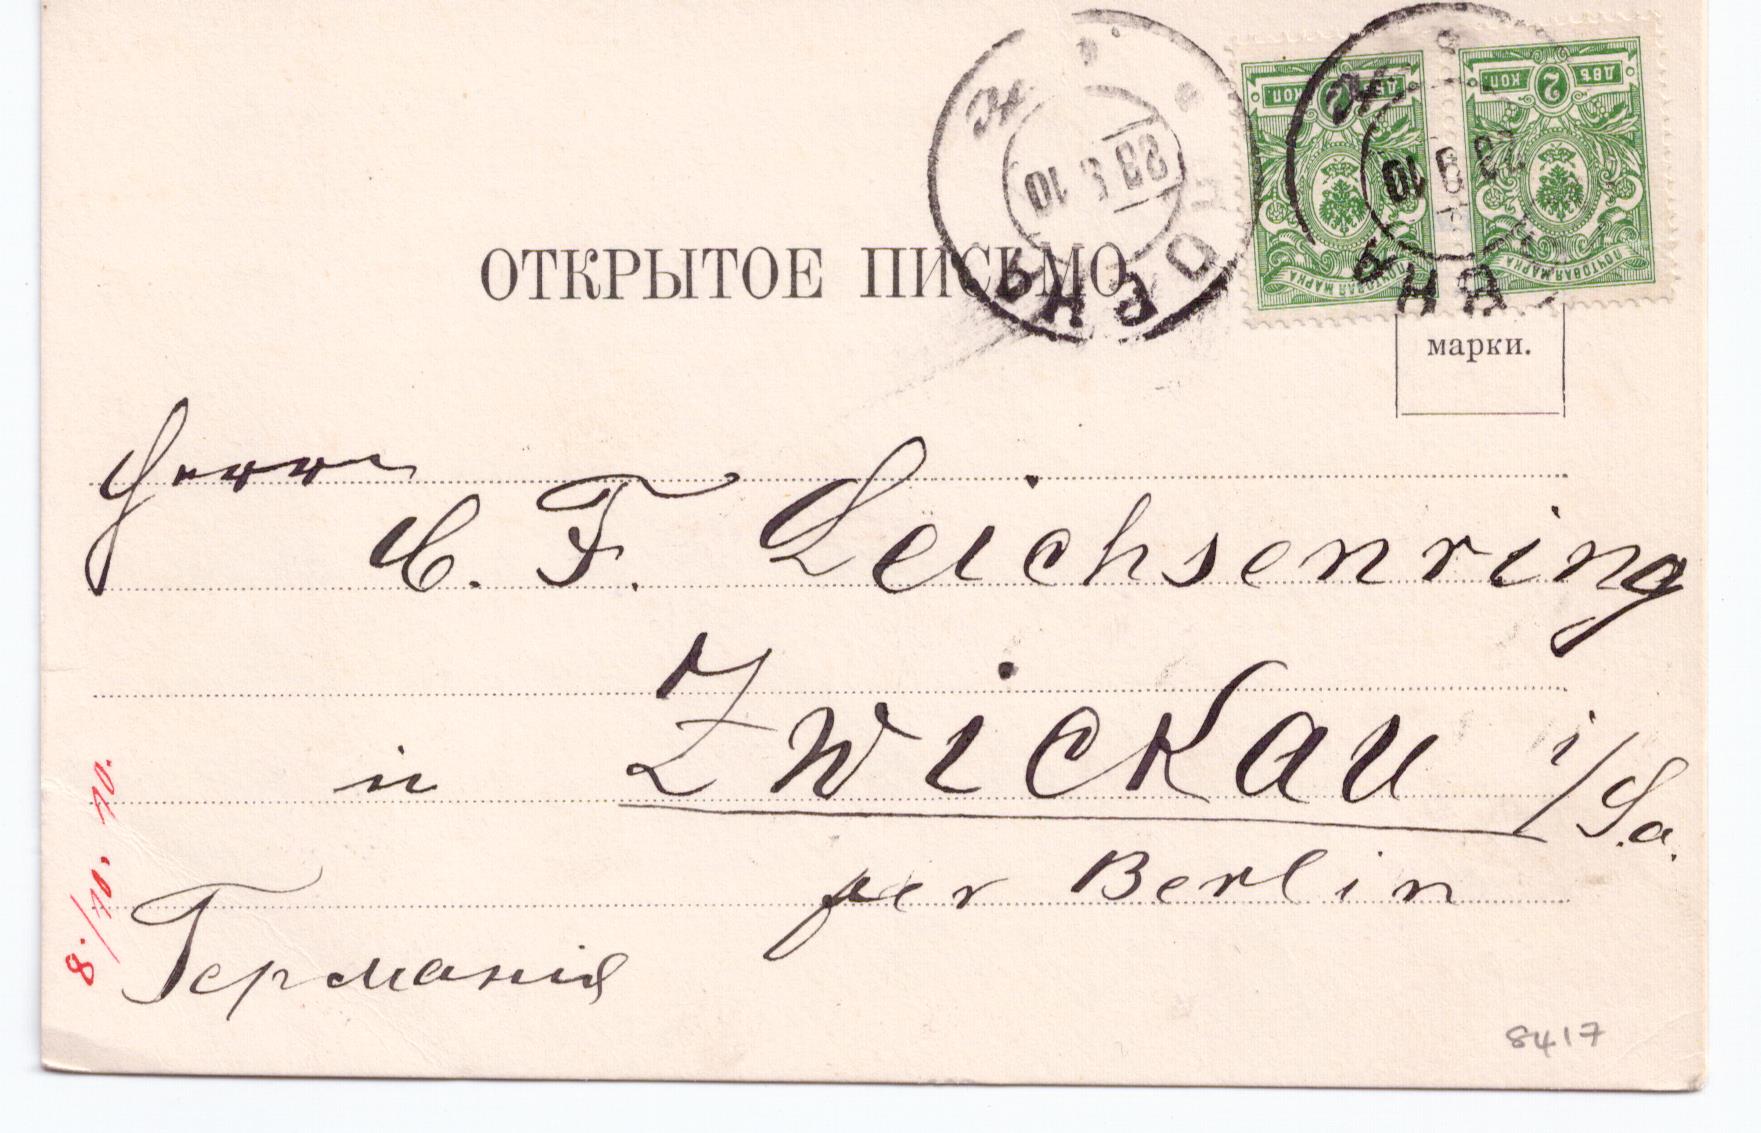 ОТКРЫТОЕ ПИСЬМО
ДВѢ 2 КОП.
ПОЧТОВАЯ МАРКА
ДВѢ 2 КОП.
ПОЧТОВАЯ МАРКА
28 9 10
28 9 10
марки.
Herrn
C. F. Leichsenring
in Zwickau i/Sa.
per Berlin
Германія
8./10. 10.
8417